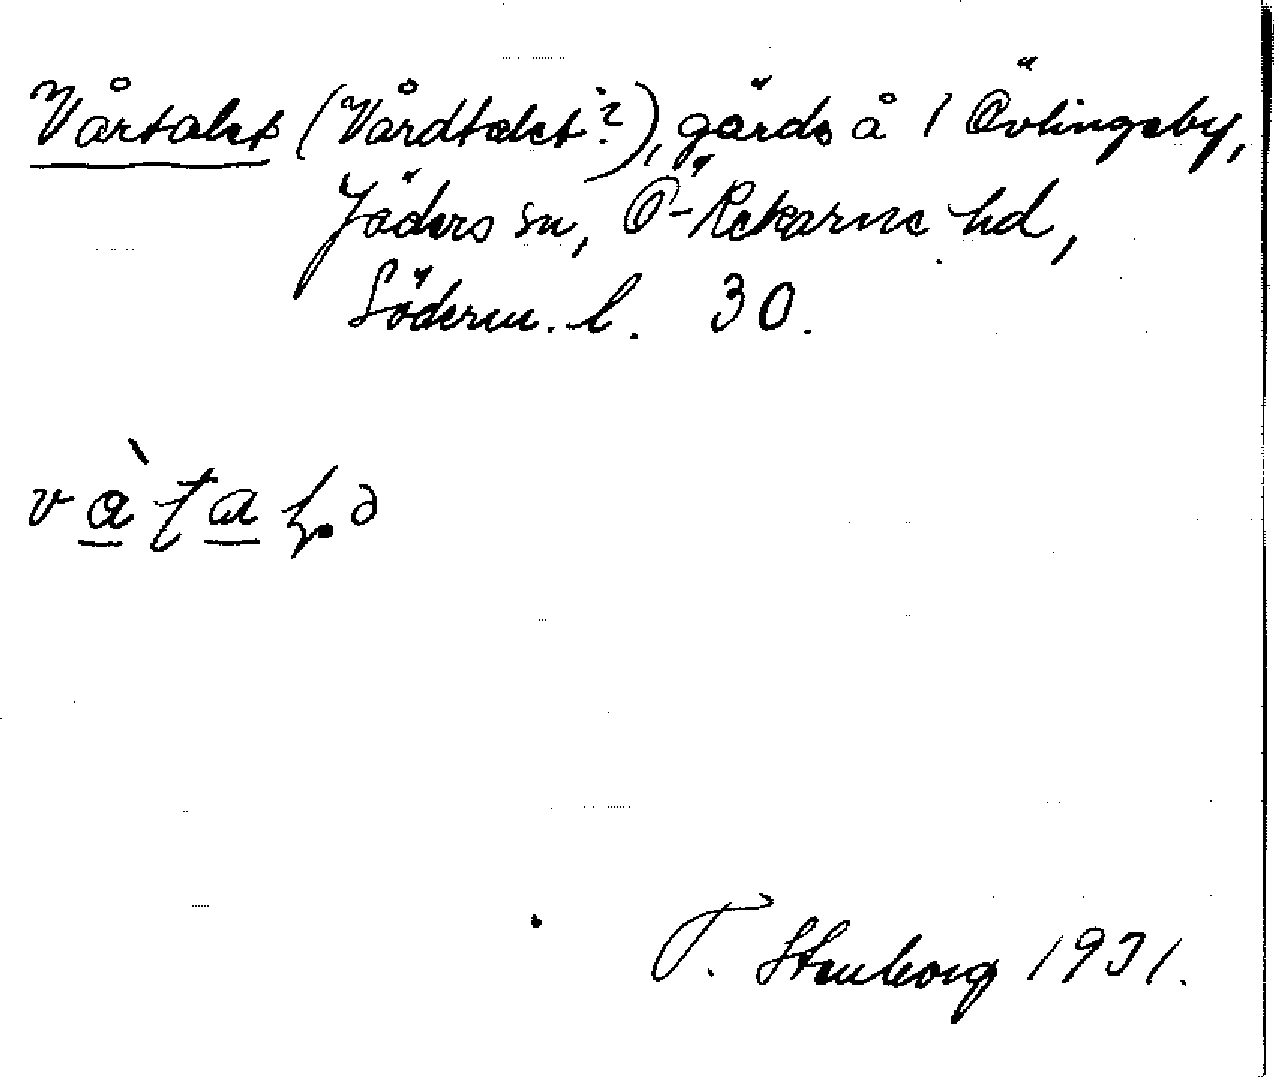 Vårtalet (Vårdtalet?), gärds å 1 Övlingeby,
Jäders sn, Ö-Rekarne hd,
Söderm. l. 30.
T. Stenborg 1931.